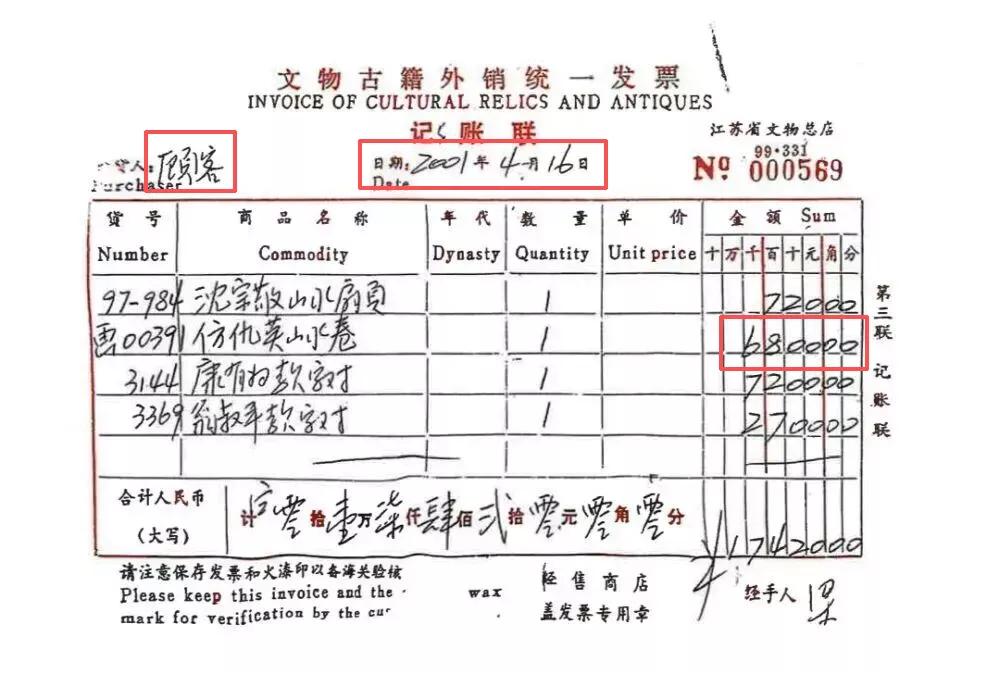 文物古籍外销统一发票
INVOICE OF CULTURAL RELICS AND ANTIQUES
记账联
江苏省文物总店
99·331
顾客
日期：2001年4月16日
Nº 000569
Purchaser
Date
货号 商品名称 年代 数量 单价 金额 Sum
Number Commodity Dynasty Quantity Unit price 十万千百十元角分
97-984 沈宗敬山水扇页 1 72000
画00391 仿仇英山水卷 1 680000
3144 康有为款字对 1 720000
3369 翁叔平款字对 1 270000
第三联 记账联
合计人民币
（大写）
计 零拾壹万柒仟肆佰贰拾零元零角零分
¥1742000
请注意保存发票和火漆印以备海关验核
Please keep this invoice and the wax
mark for verification by the
经售商店
盖发票专用章
经手人